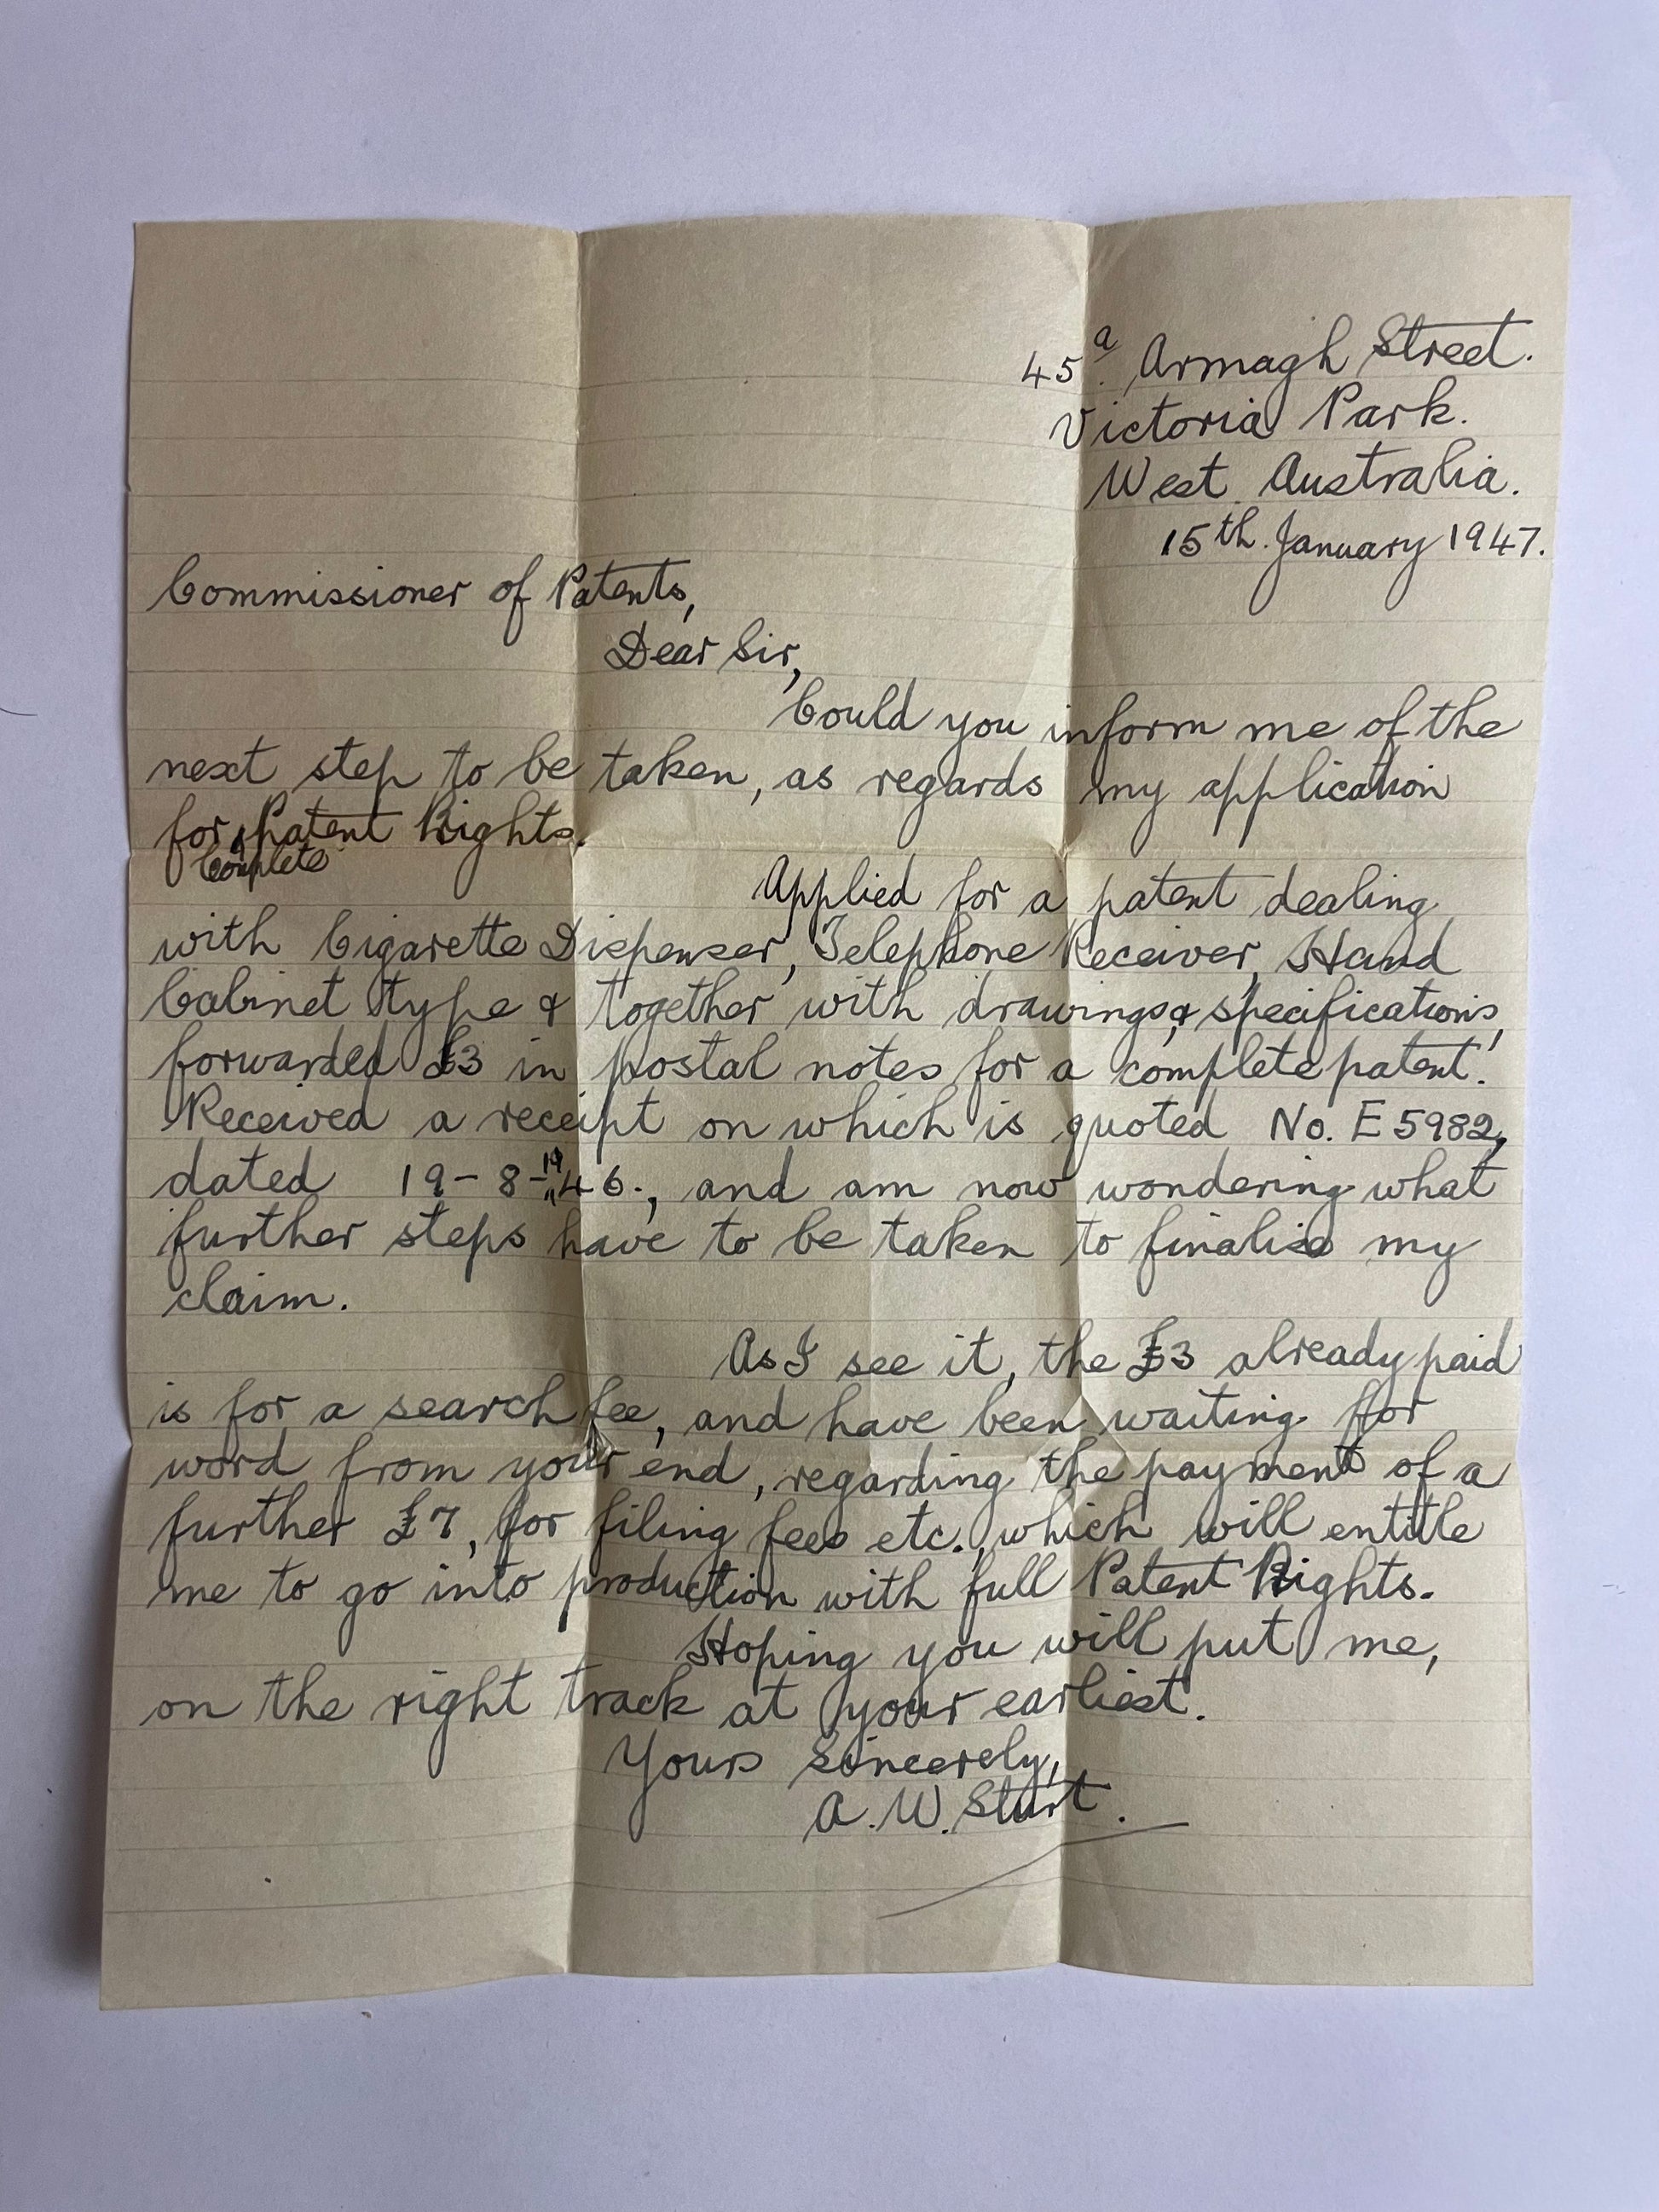 45a. Armagh Street.
Victoria Park.
West Australia.
15th. January 1947.
Commissioner of Patents,
Dear Sir,
Could you inform me of the
next step to be taken, as regards my application
for Complete Patent Rights.
Applied for a patent dealing
with Cigarette Dispenser, Telephone Receiver, Hand
Cabinet type & together with drawings & specifications,
forwarded £3 in postal notes for a complete patent.
Received a receipt on which is quoted No. E5982,
dated 19-8-1946., and am now wondering what
further steps have to be taken to finalise my
claim.
As I see it, the £3 already paid
is for a search fee, and have been waiting for
word from your end, regarding the payment of a
further £7, for filing fees etc., which will entitle
me to go into production with full Patent Rights.
Hoping you will put me,
on the right track at your earliest.
Yours Sincerely,
A. W. Sturt.